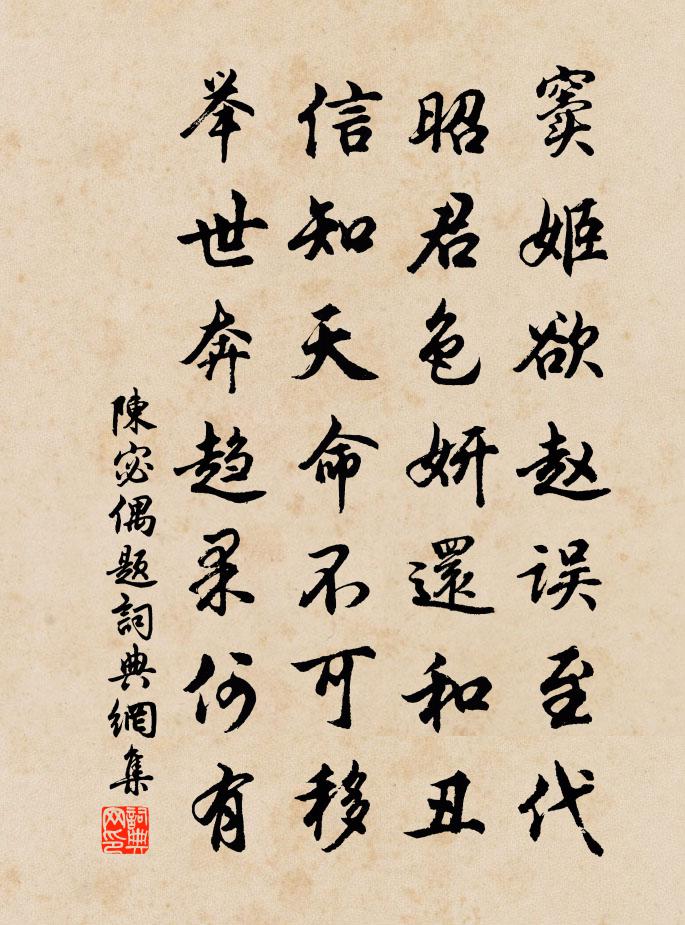 窦姬欲赵误至代
昭君色妍還和丑
信知天命不可移
举世奔趋果何有
陳宓偶题詞典網集
詞典网印